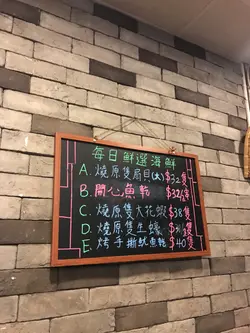 每日鮮選海鮮
A. 燒原隻扇貝(大) $32隻
B. 開心魚乾 $32/
C. 燒原隻大花蝦 $38隻
D. 燒原隻生蠔 隻
E. 烤手撕魷魚乾 $40隻